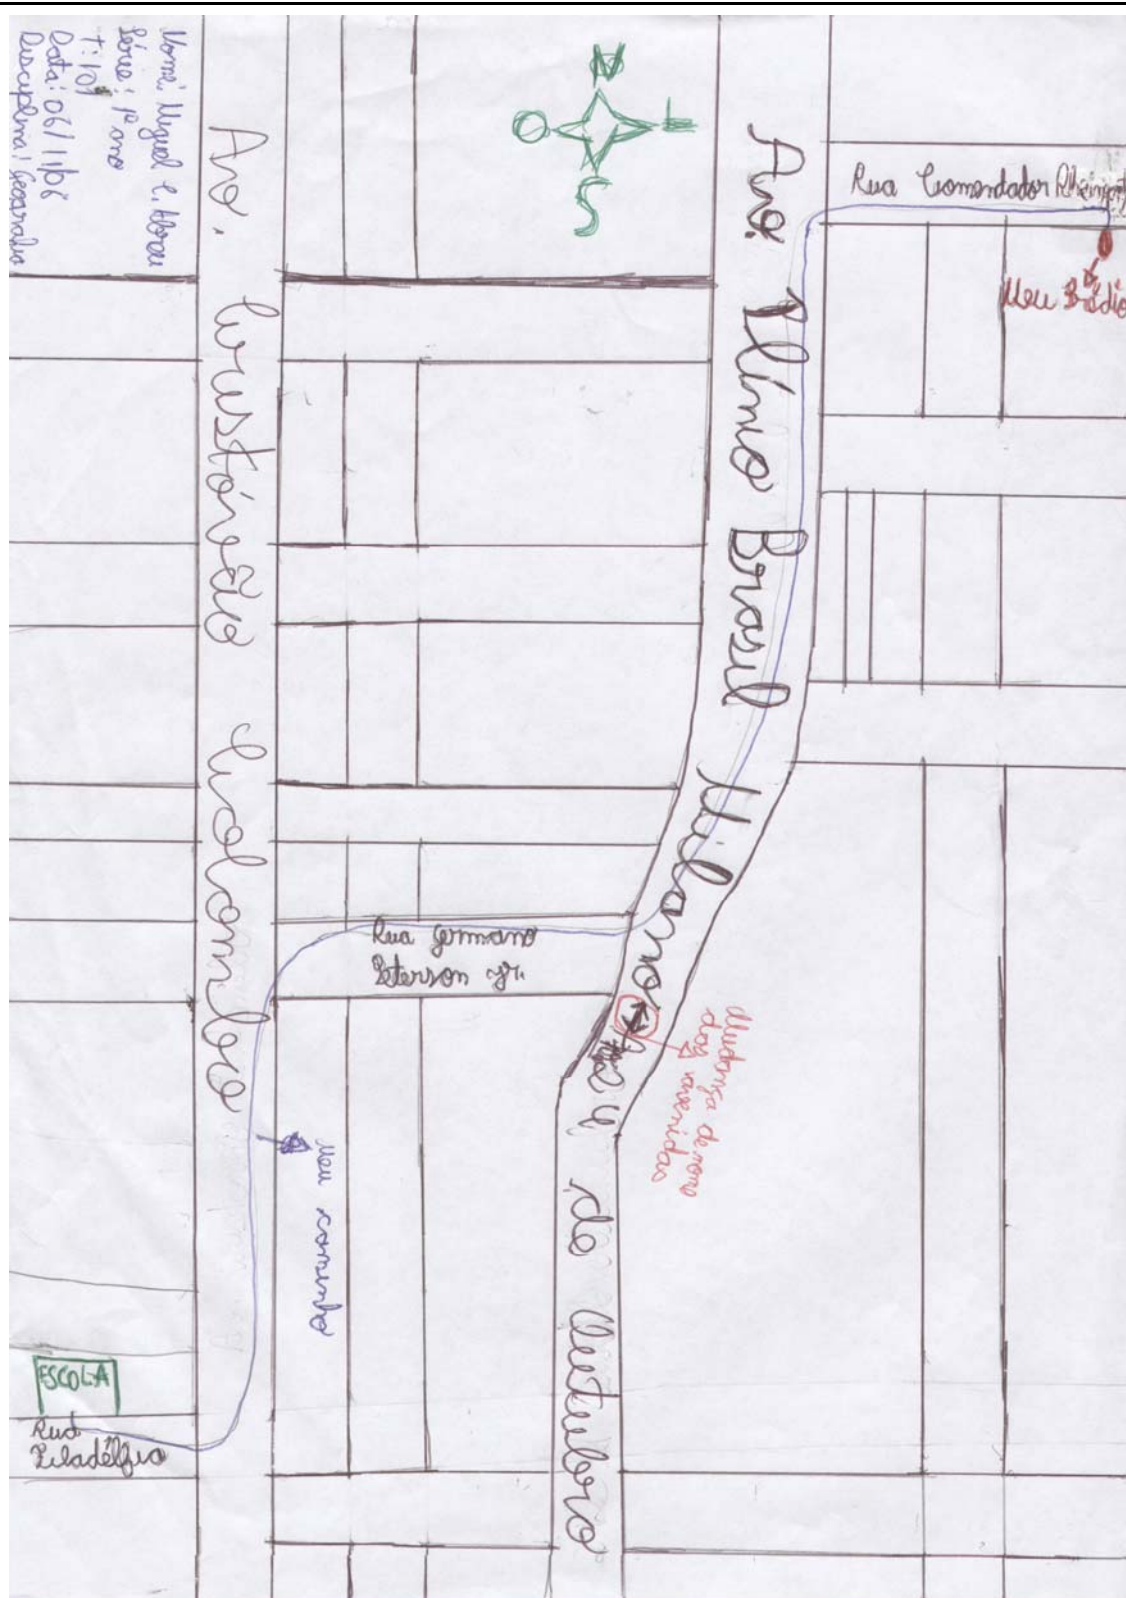 Nome: Miguel C. Abreu
Série: 1º ano
T: 101
Data: 06/11/06
Disciplina: Geografia
N
L
O
S
Av. Cristóvão Colombo
Av. Plínio Brasil Milano
24 de Outubro
Rua Comendador Rheingantz
Meu Prédio
Rua Germano
Peterson Jr.
Mudança de nome
das avenidas
Meu caminho
ESCOLA
Rua
Filadélfia